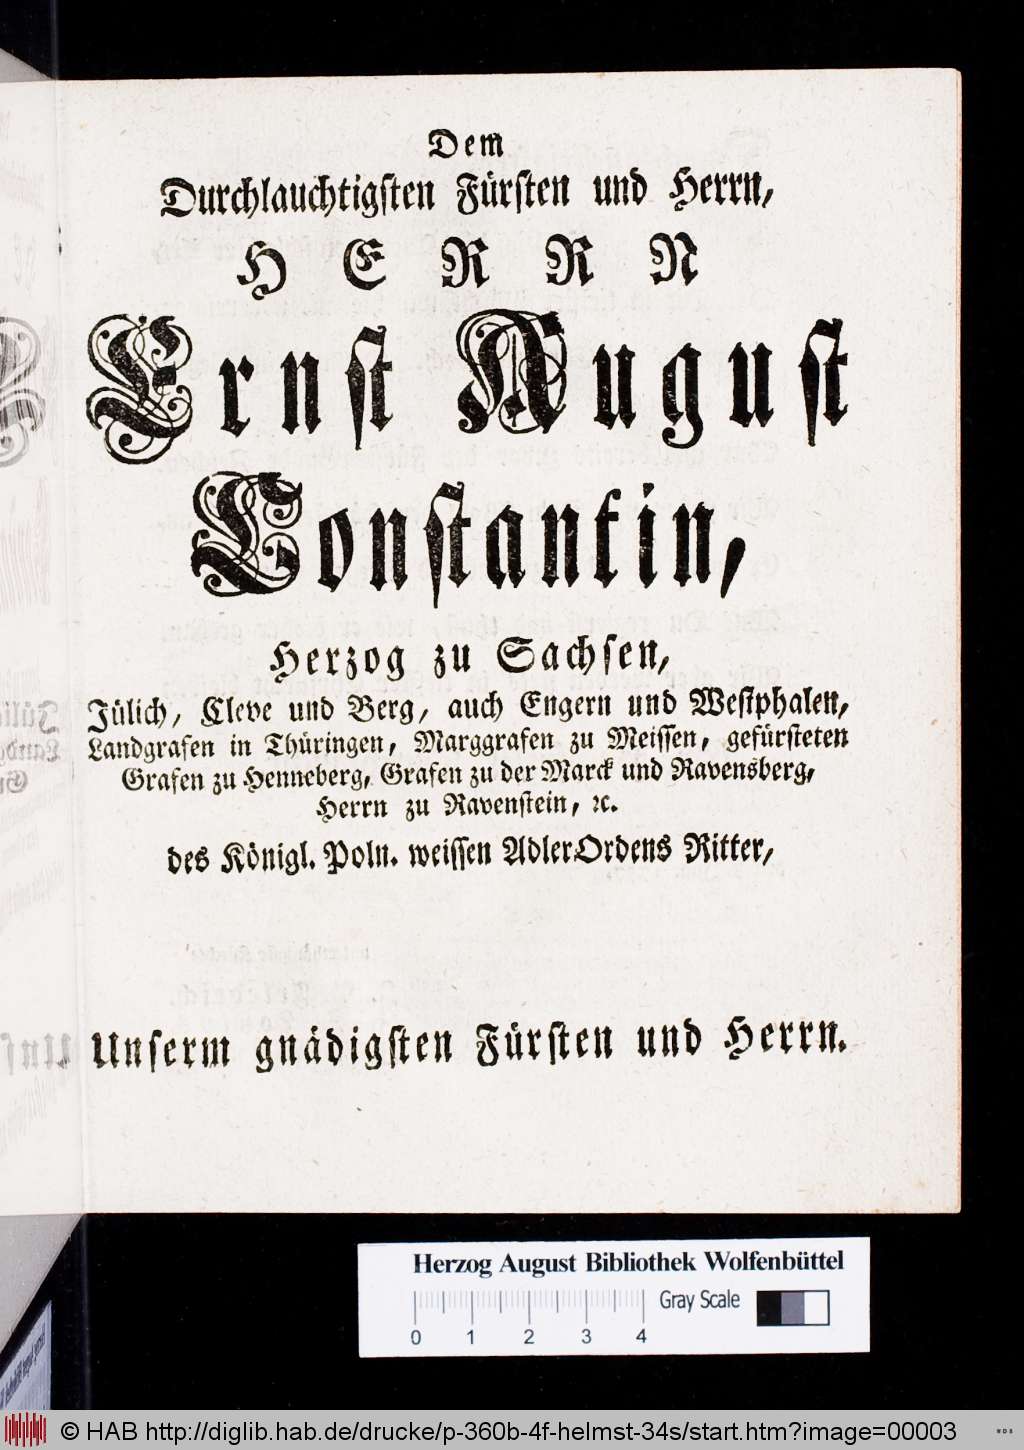 Dem
Durchlauchtigsten Fürsten und Herrn,
HERRN
Ernst August
Constantin,
Herzog zu Sachsen,
Jülich, Cleve und Berg, auch Engern und Westphalen,
Landgrafen in Thüringen, Marggrafen zu Meissen, gefürsteten
Grafen zu Henneberg, Grafen zu der Marck und Ravensberg,
Herrn zu Ravenstein, ꝛc.
des Königl. Poln. weissen AdlerOrdens Ritter,
Unserm gnädigsten Fürsten und Herrn.
Herzog August Bibliothek Wolfenbüttel
Gray Scale
0 1 2 3 4
© HAB http://diglib.hab.de/drucke/p-360b-4f-helmst-34s/start.htm?image=00003